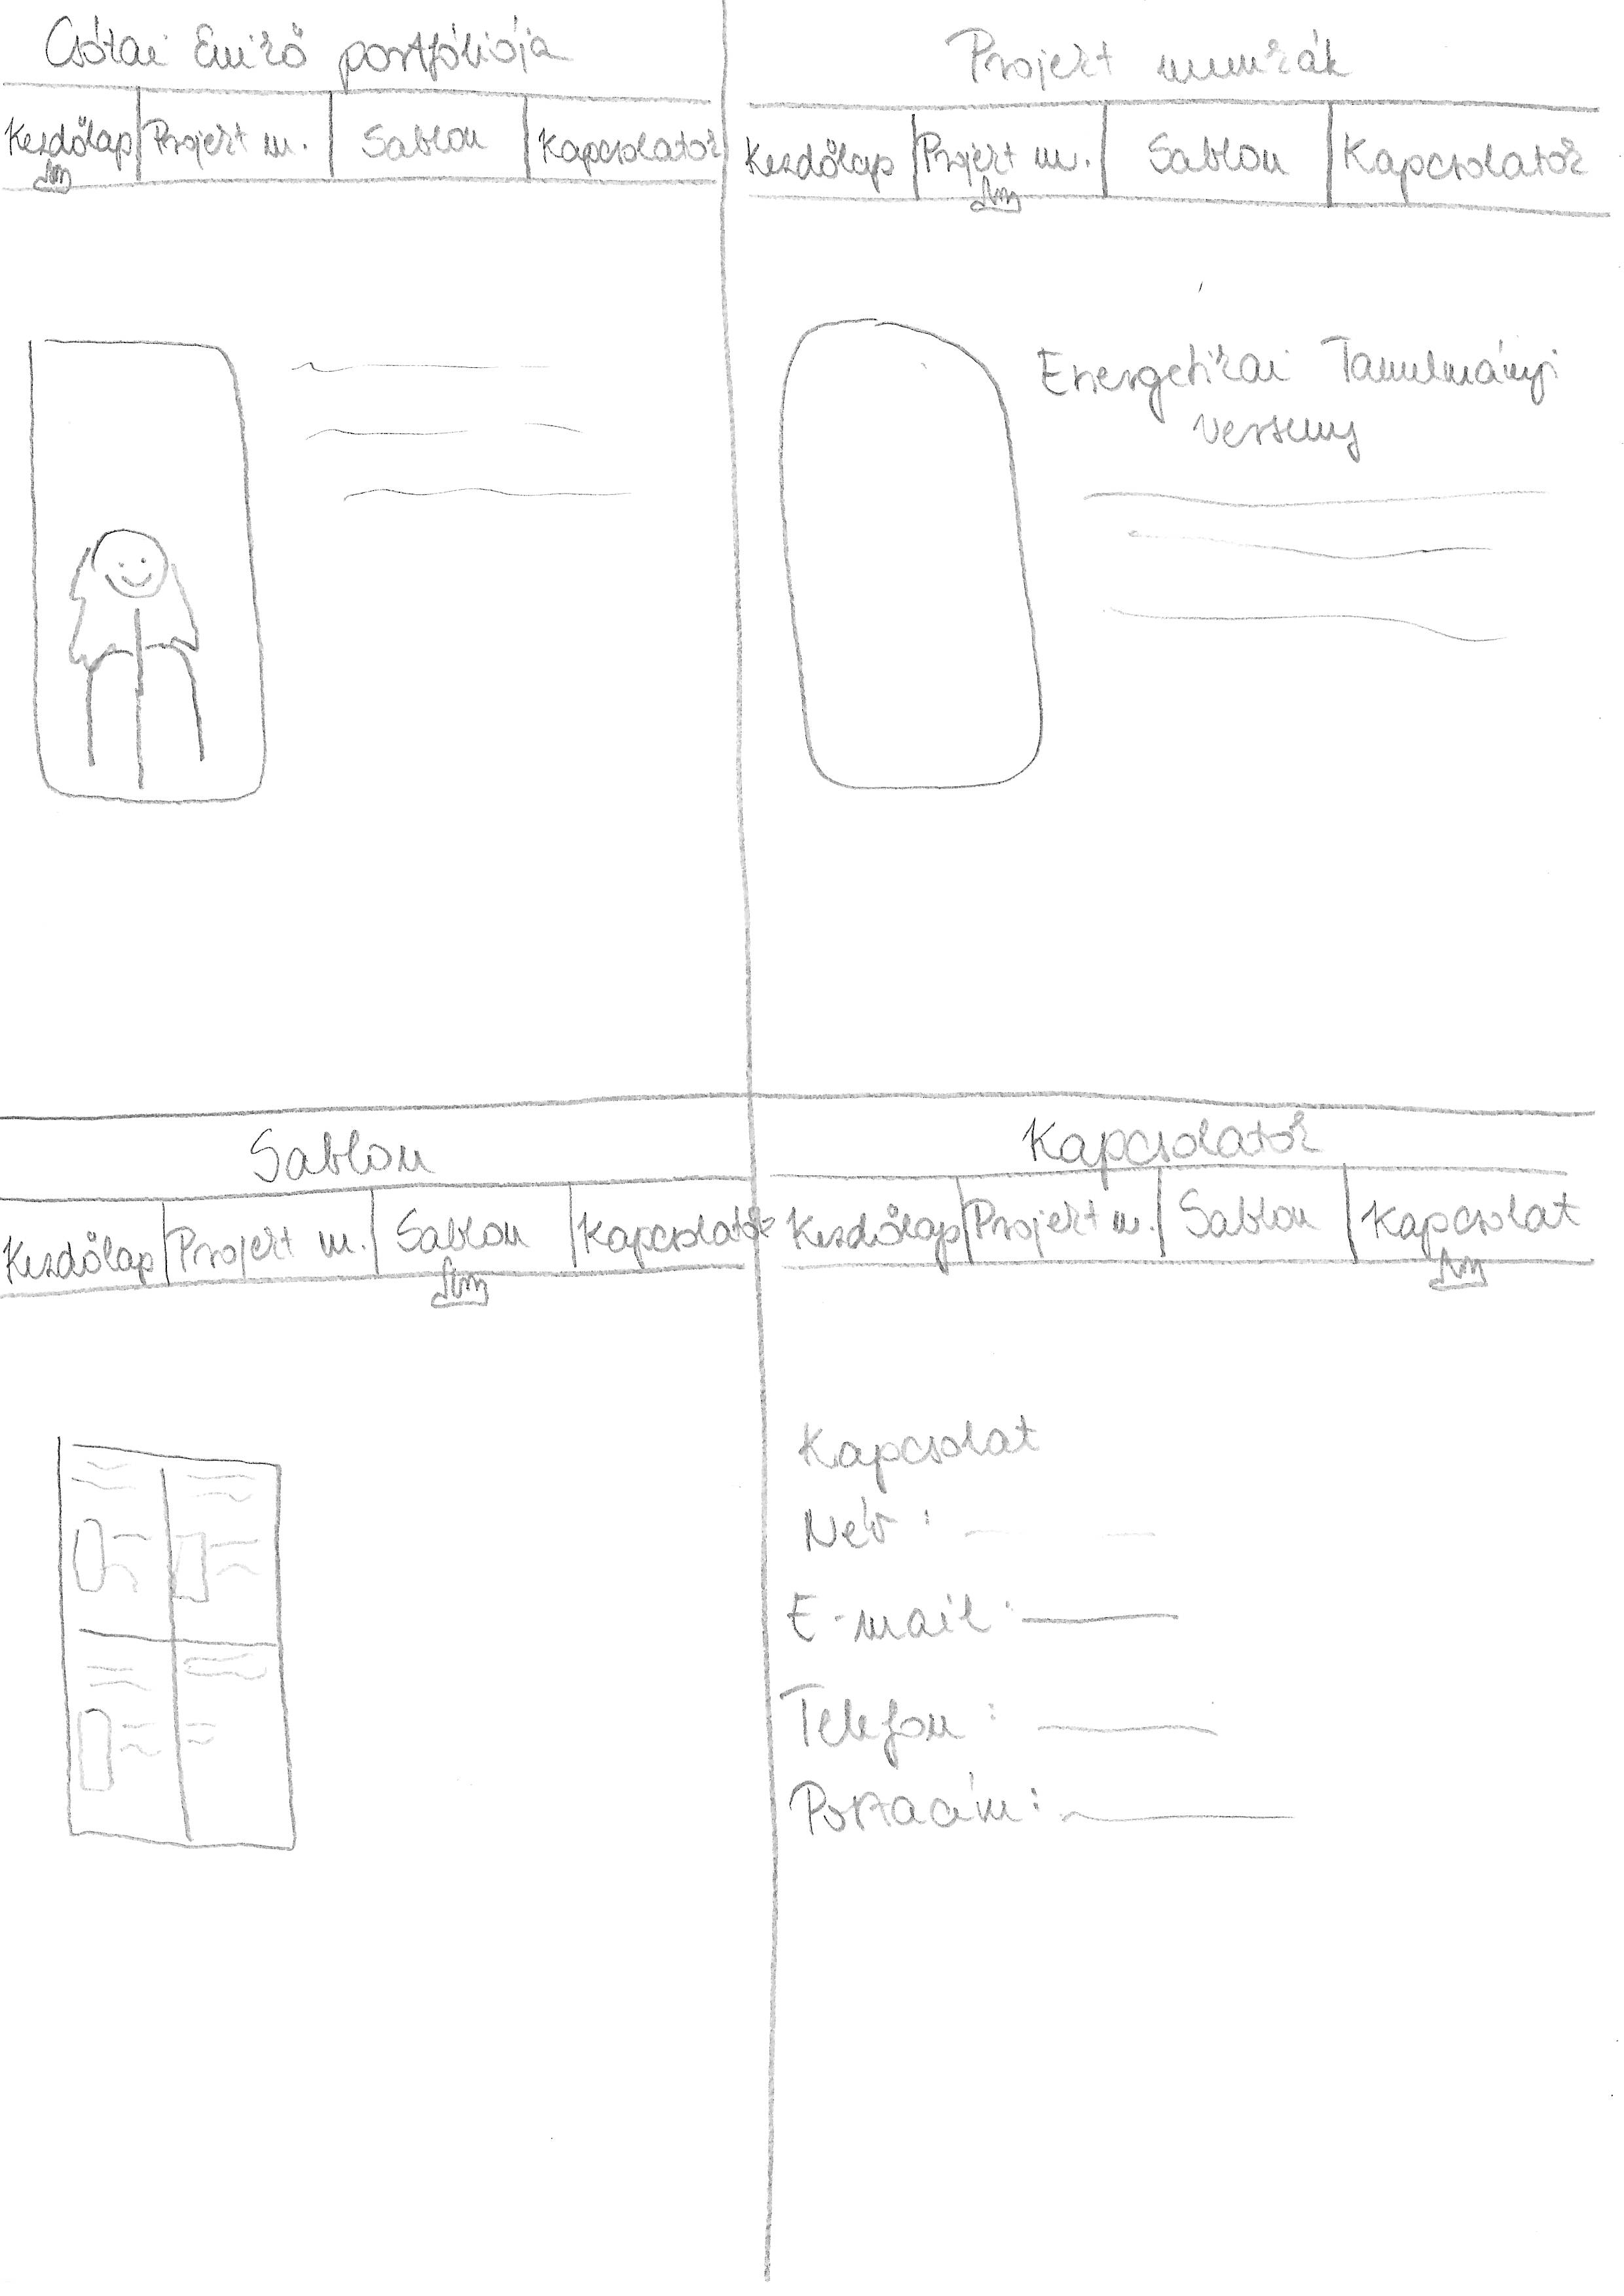 Csótai Enikő portfóliója
Kezdőlap Projekt m. Sablon Kapcsolatok
Projekt munkák
Kezdőlap Projekt m. Sablon Kapcsolatok
Energetikai Tanulmányi
verseny
Sablon
Kezdőlap Projekt m. Sablon Kapcsolatok
Kapcsolatok
Kezdőlap Projekt m. Sablon Kapcsolat
Kapcsolat
Név:
E-mail:
Telefon:
Postacím: